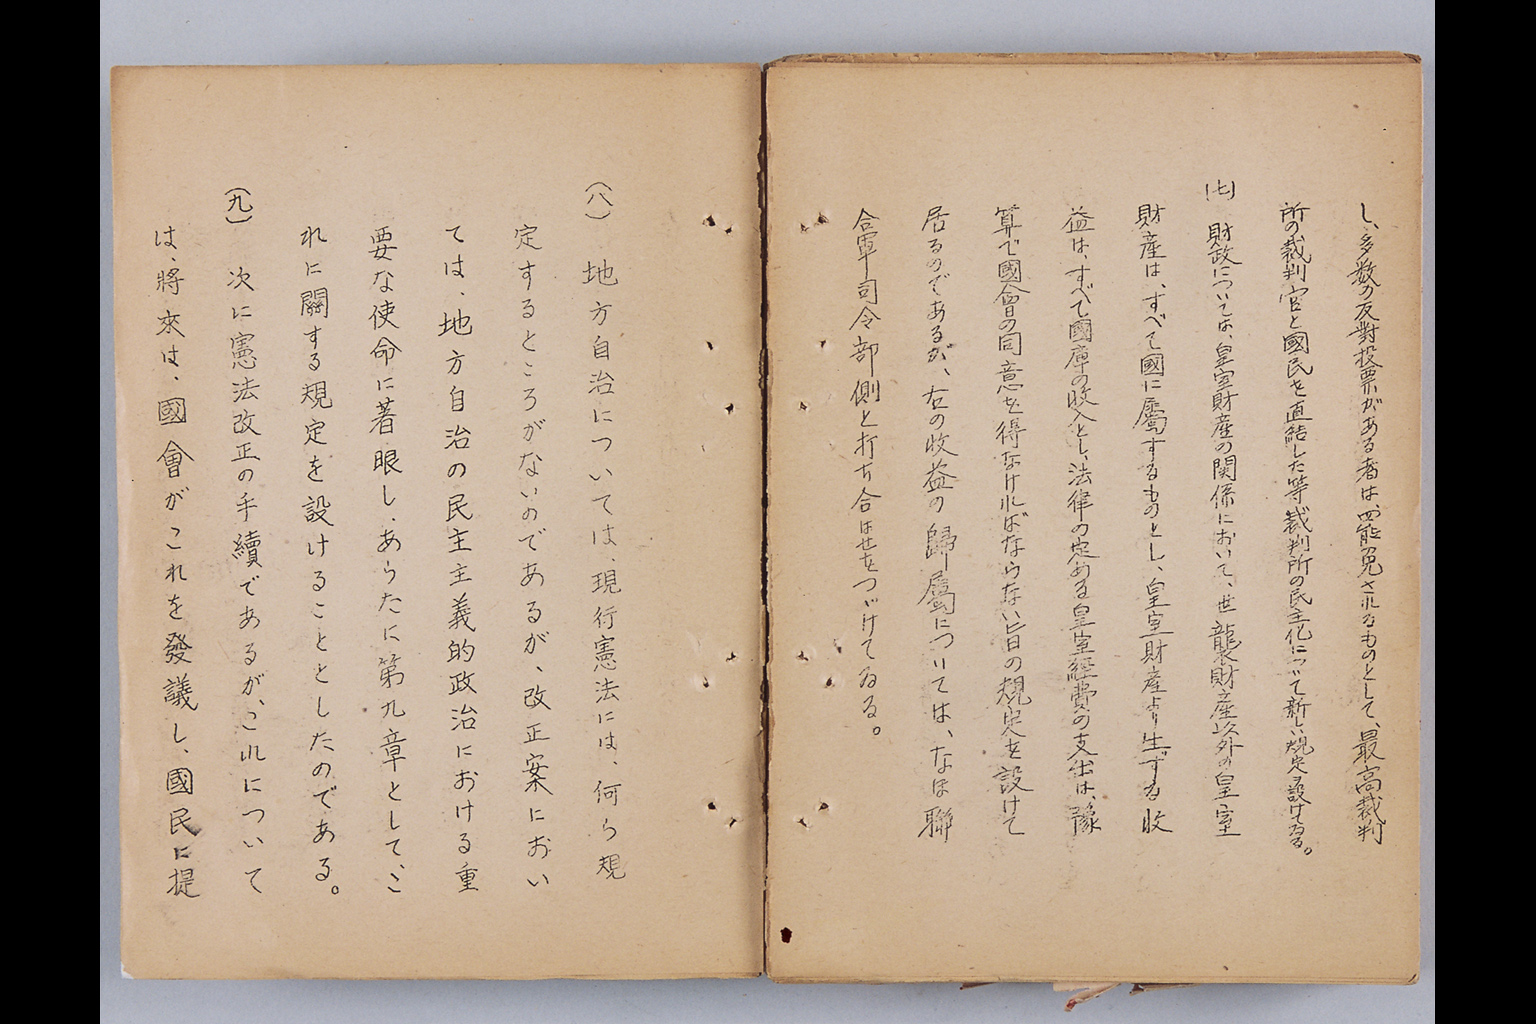 し、多数の反對投票がある者は、罷免されるものとして、最高裁判
所の裁判官と國民を直結した等裁判所の民主化について新しい規定を設けてゐる。
(七) 財政については、皇室財産の関係において、世襲財産以外の皇室
財産は、すべて國に屬するものとし、皇室財産より生ずる收
益は、すべて國庫の收入とし、法律の定める皇室經費の支出は、豫
算で國會の同意を得なければならない旨の規定を設けて
居るのであるが、右の收益の歸屬については、なほ聯
合軍司令部側と打ち合はせをつゞけてゐる。
(八) 地方自治については、現行憲法には、何ら規
定するところがないのであるが、改正案におい
ては、地方自治の民主主義的政治における重
要な使命に著眼し、あらたに第九章として、こ
れに關する規定を設けることとしたのである。
(九) 次に憲法改正の手續であるが、これについて
は、將來は、國會がこれを發議し、國民に提